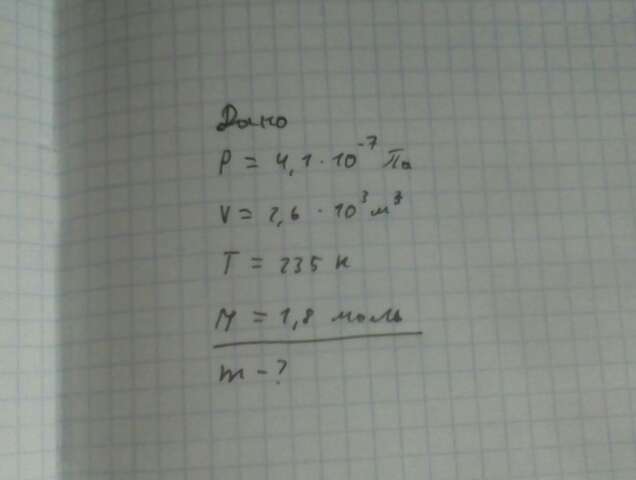 Дано
P = 4,1 · 10⁻⁷ Па
V = 2,6 · 10³ м³
T = 235 К
M = 1,8 моль
m - ?